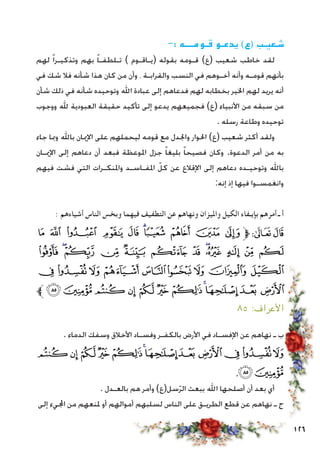 شعيب (ع) يدعو قومـــه :-
لقد خاطب شعيب (ع) قـومه بقوله (يـاقـوم ) تـلطفـاً بهم وتذكيـراً لهم
بأنهم قومـه وأنه أخـوهم في النسب والقرابـة . وأن من كان هذا شأنه فلا شك في
أنه يريد لهم الخير بخطابه لهم فدعاهم إلى عبادة الله وتوحيده شأنه في ذلك شأن
من سبقه من الأنبياء (ع) فجميعهم يدعو إلى تأكيد حقيقة العبودية لله ووجوب
توحيده وطاعة رسله .
ولقد أكثر شعيب (ع) الحوار والجدل مع قومه ليحملهم على الإيمان بالله وما جاء
به من أمر الدعوة. وكان فصيحاً بليغاً جزل الموعظة فبعد أن دعاهم إلى الإيمـان
بالله وتوحيـده دعاهم إلى الإقلاع عن كـلّ المفـاسـد والمنكـرات التي فشت فيهم
وانغمسـوا فيها إذ إنه:
أ ـ أمرهم بإيفاء الكيل والميزان ونهاهم عن التطفيف فيهما وبخس الناس أشياءهم :
قَالَ تَعَالَى: ﴿ وَإِلَىٰ مَدْيَنَ أَخَاهُمْ شُعَيْبًا ۗ قَالَ يَٰقَوْمِ ٱعْبُدُوا۟ ٱللَّهَ مَا
لَكُم مِّنْ إِلَٰهٍ غَيْرُهُۥ ۖ قَدْ جَآءَتْكُم بَيِّنَةٌ مِّن رَّبِّكُمْ ۖ فَأَوْفُوا۟
ٱلْكَيْلَ وَٱلْمِيزَانَ وَلَا تَبْخَسُوا۟ ٱلنَّاسَ أَشْيَآءَهُمْ وَلَا تُفْسِدُوا۟ فِى
ٱلْأَرْضِ بَعْدَ إِصْلَٰحِهَا ۚ ذَٰلِكُمْ خَيْرٌ لَّكُمْ إِن كُنتُم مُّؤْمِنِينَ ٨٥ ﴾
الأعراف: ٨٥
ب ـ نهاهم عن الإفسـاد في الأرض بالكفـر وفسـاد الأخلاق وسفك الدماء .
وَلَا تُفْسِدُوا۟ فِى ٱلْأَرْضِ بَعْدَ إِصْلَٰحِهَا ۚ ذَٰلِكُمْ خَيْرٌ لَّكُمْ إِن كُنتُم
مُّؤْمِنِينَ ٨٥.
أي بعد أن أصلحها الله ببعث الرّسل(ع) وأمرهم بالعـدل .
ج ـ نهاهم عن قطع الطريـق على الناس لسلبهم أموالهم أو لمنعهم من المجيء إلى
١٢٦